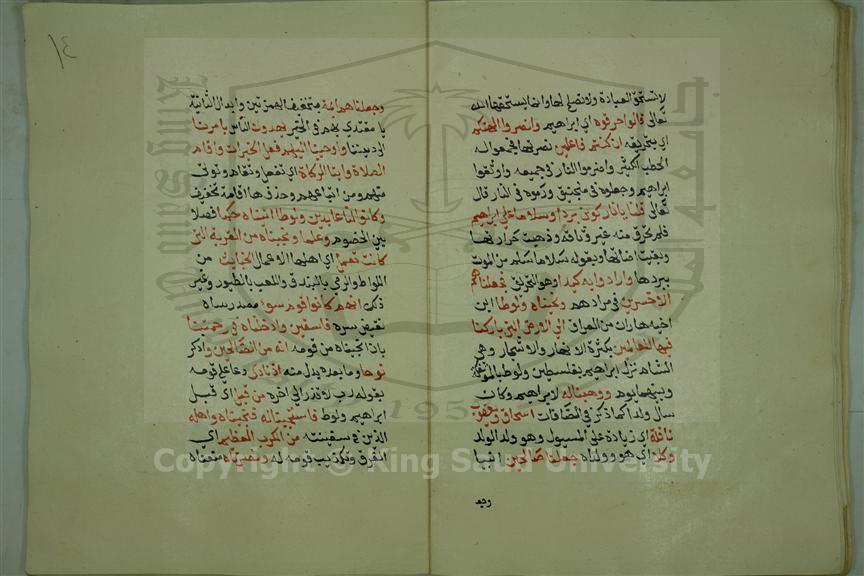 لا تستحق العبادة ولا تصلح لها وانما يستحقها الله
تعالى قالوا حرقوه اي ابراهيم وانصروا الهتكم
اي بتحريقه ان كنتم فاعلين نصرتها فجمعوا له
الحطب الكثير واضرموا النار في جميعه واوثقوا
ابراهيم وجعلوه في منجنيق ورموه في النار قال
تعالى قلنا يا نار كوني بردا وسلاما على ابراهيم
فلم تحرق منه غير وثاقه وذهبت حرارتها
وبقيت اضاءتها وبقوله سلاما سلم من الموت
ببردها وارادوا به كيدا وهو التحريق فجعلناهم
الاخسرين في مرادهم ونجيناه ولوطا ابن
اخيه هاران من العراق الى الارض التي باركنا
فيها للعالمين بكثرة الانهار والاشجار وهي
الشام نزل ابراهيم بفلسطين ولوط بالموتفكة
وبينهما يوم ووهبنا له لابراهيم وكان
سال ولدا كما ذكر في الصافات اسحاق ويعقوب
نافلة اي زيادة على المسيول وهو ولد الولد
وكلا اي هو وولداه جعلنا صالحين انبيا
وجعـ
١٤
وجعلناهم ائمة بتحقيق الهمزتين وابدال الثانية
يا يقتدي بهم في الخير يهدون الناس بامرنا
الى ديننا واوحينا اليهم فعل الخيرات واقام
الصلاة وايتا الزكاة اي تفعل وتقام وتوتى
منهم ومن اتباعهم وحذف ها اقامة تخفيف
وكانوا لنا عابدين ولوطا اتيناه حكما فصلا
بين الخصوم وعلما ونجيناه من القرية التي
كانت تعمل اي اهلها الاعمال الخبائث من
اللواط والرمي بالبندق واللعب بالطيور وغير
ذلك انهم كانوا قوم سوء مصدر ساه
نقيض سره فاسقين وادخلناه في رحمتنا
بان انجيناه من قومه انه من الصالحين واذكر
نوحا وما بعده بدل منه اذ نادى دعا على قومه
بقوله رب لا تذر الى اخره من قبل اي قبل
ابراهيم ولوط فاستجبنا له فنجيناه واهله
الذين في سفينته من الكرب العظيم اي
الغرق وتكذيب قومه له ونصرناه منعناه
جامعة الملك سعود
King Saud University
1957
Copyright © King Saud University